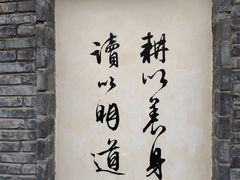 耕以养身
讀以明道